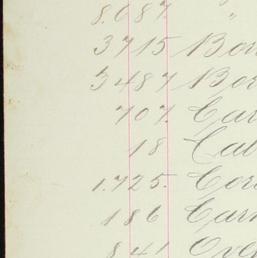 8.087 "
3715 Bon
3487 Bor
707. Car
18 Cal
1.725. Cor
186 Carn
841 Ove